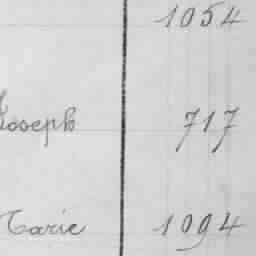 1054
Joseph 717
Marie 1094